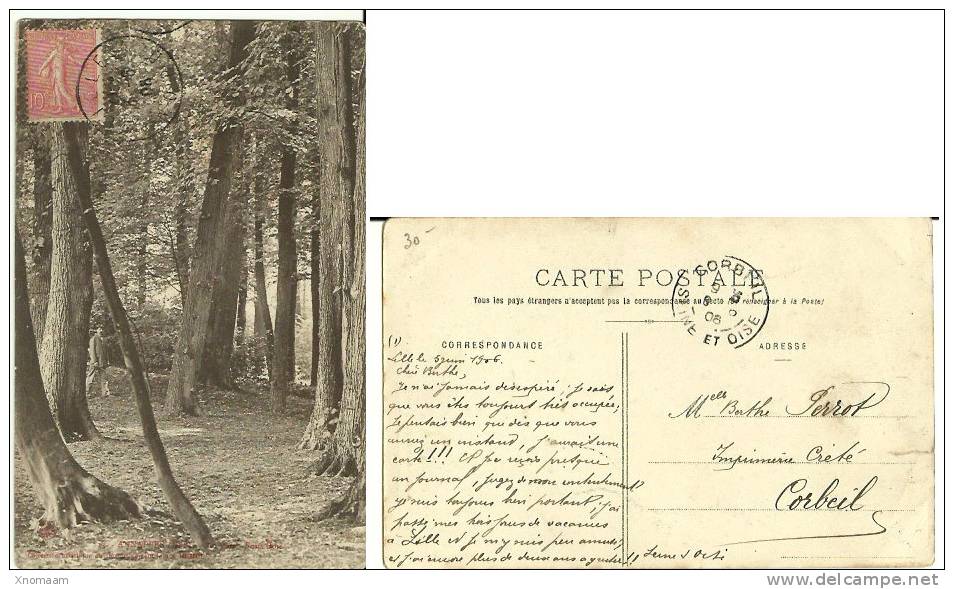 10
30-
CARTE POSTALE
Tous les pays étrangers n'acceptent pas la correspondance au recto (se renseigner à la Poste)
CORBEIL
06
SEINE ET OISE
CORRESPONDANCE
(1)
Lille le 5 juin 1906.
Chère Berthe,
Je n'ai jamais désespéré; je sais
que vous êtes toujours très occupée,
je sentais bien que dès que vous
auriez un instant, j'aurait une
carte!!! Et je reçois presque
un journal, jugez de mon contentement
je suis toujours bien portant, j'ai
passé mes jours de vacances
à Lille et je m'y suis peu amusé,
et j'ai encore plus de deux ans à y faire!!
ADRESSE
Melle Berthe Perrot
Imprimerie Crété
Corbeil
Seine et Oise
Xnomaam
delcampe.net